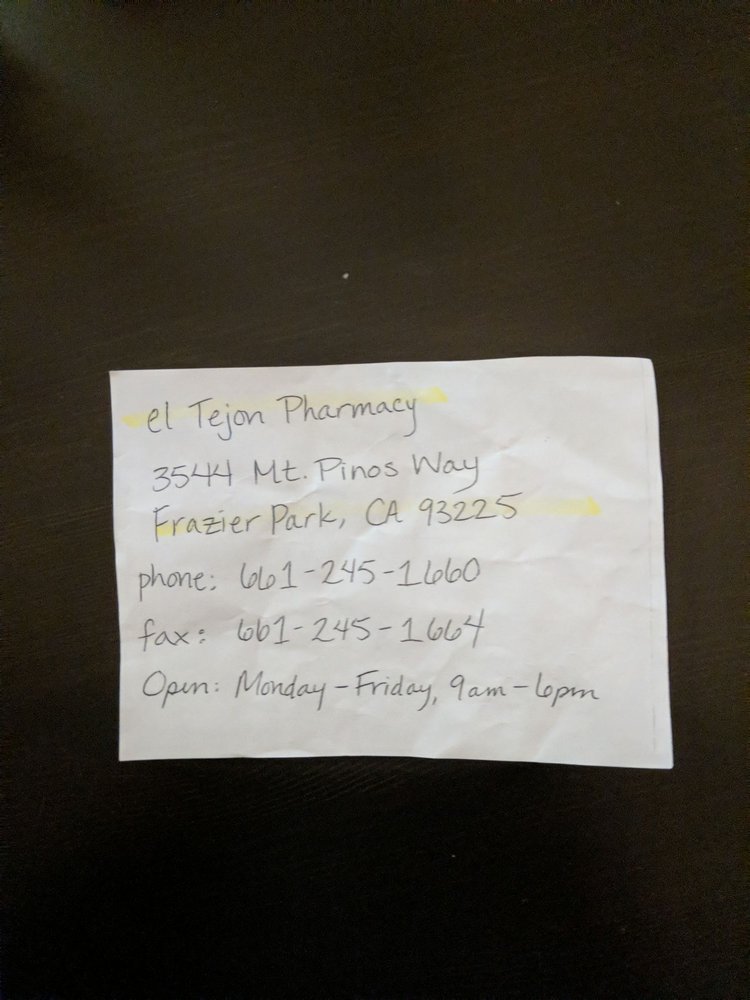 el Tejon Pharmacy
3544 Mt. Pinos Way
Frazier Park, CA 93225
phone: 661-245-1660
fax: 661-245-1664
Open: Monday-Friday, 9am-6pm